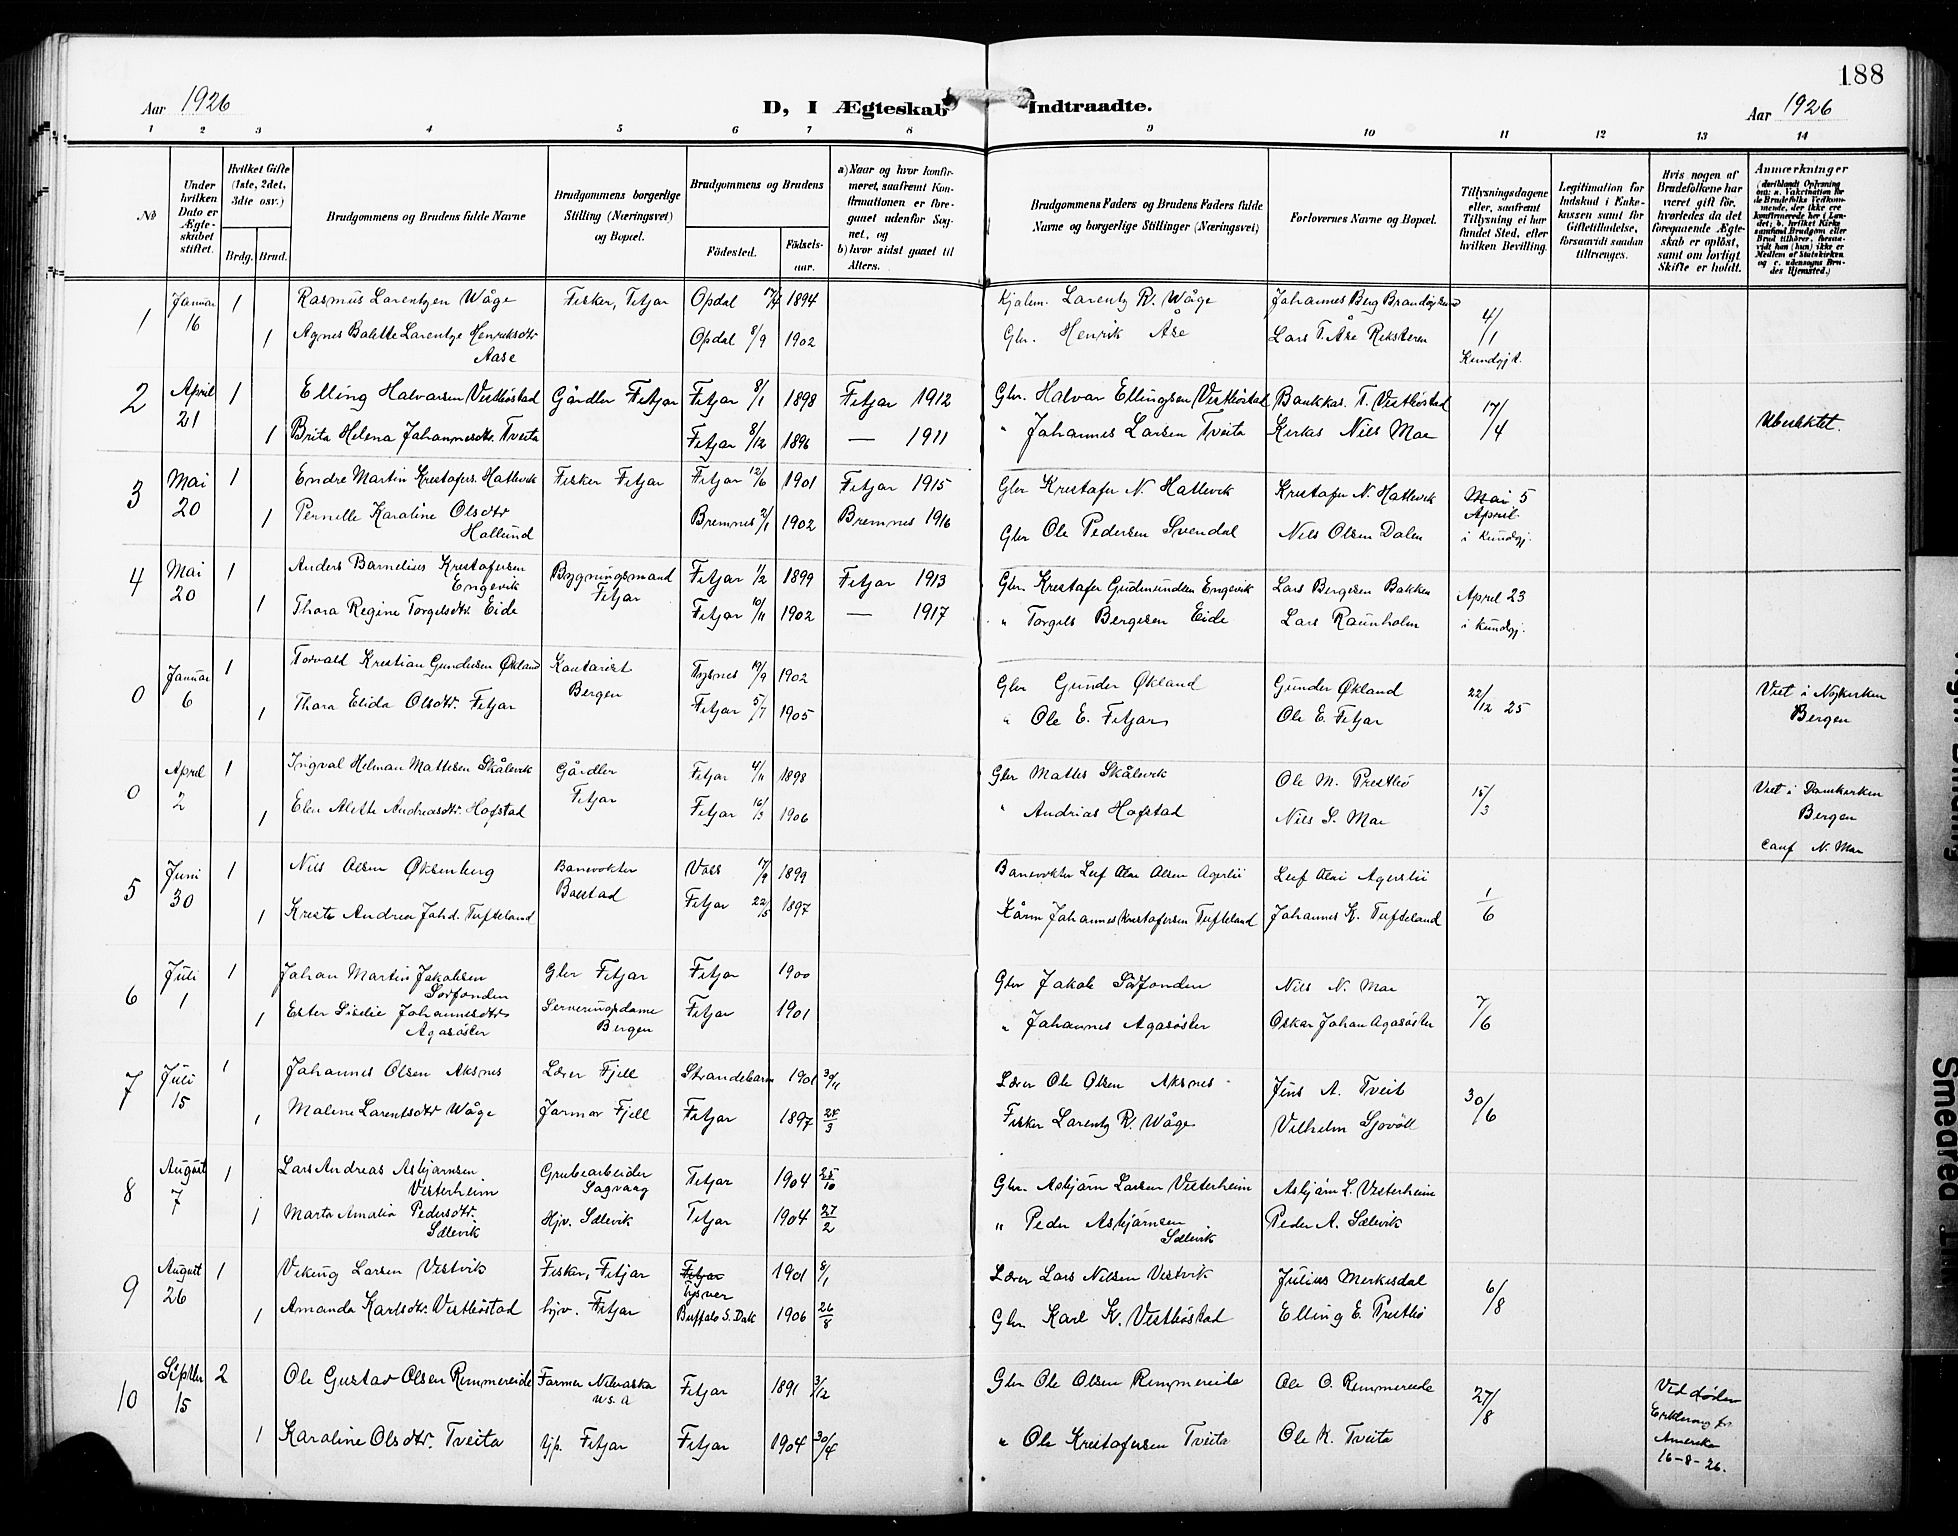 188
Aar 1926
D, I Ægteskab Indtraadte.
Aar 1926
1 2 3 4 5 6 7 8 9 10 11 12 13 14
No
Under hvilken Dato er Ægteskabet stiftet.
Hvilket Gifte (1ste, 2det, 3die osv.)
Brdg. Brud.
Brudgommens og Brudens fulde Navne
Brudgommens borgerlige Stilling (Næringsvei) og Bopæl.
Brudgommens og Brudens
Fødested.
Fødselsaar.
a) Naar og hvor konfirmeret, saafremt Konfirmationen er foregaaet udenfor Sognet, og
b) hvor sidst gaaet til Alters.
Brudgommens Faders og Brudens Faders fulde Navne og borgerlige Stillinger (Næringsvei)
Forlovernes Navne og Bopæl.
Tillysningsdagene eller, saafremt Tillysning ei har fundet Sted, efter hvilken Bevilling.
Legitimation for Indskud i Enkekassen samt for Giftetilladelse, forsaavidt saadan tiltrænges.
Hvis nogen af Brudefolkene har været gift før, hvorledes da det foregaaende Ægteskab er opløst, samt om lovligt Skifte er holdt.
Anmærkninger
(deriblandt Oplysning om: a. Vakcination for de Brudefolks Vedkommende, der ikke ere konfirmerede her i Landet; b. hvilket Kirkesamfund Brudgom eller Brud tilhører, forsaavidt han (hun) ikke er Medlem af Statskirken og c. udensogns Brudes Hjemsted.)
1 Januar 16 1 Rasmus Larentzen Wåge Fisker, Fitjar Opdal 17/4 1894 Kjølem. Larentz R. Wåge Johannes Berg Brandasund 4/1
1 Agnes Bolette Larentze Henriksdtr Aase Opdal 8/9 1902 Gbr. Henrik Åse Lars T. Åse Reksteren Kundgjt.
2 April 21 1 Elling Halvorsen Vestbøstad Gårdbr Fitjar Fitjar 8/1 1898 Fitjar 1912 Gbr. Halvor Ellingsen Vestbøstad Bankkas. T. Vestbøstad 17/4
1 Brita Helena Johannesdtr. Tveita Fitjar 8/12 1896 — 1911 " Johannes Larsen Tveita Kirkes Nils Moe
3 Mai 20 1 Endre Martin Kristofers. Hatlevik Fisker Fitjar Fitjar 12/6 1901 Fitjar 1915 Gbr Kristofer N. Hatlevik Kristofer N. Hatlevik Mai 5 April
1 Pernelle Karoline Olsdtr Hollund Bremnes 2/1 1902 Bremnes 1916 Gbr Ole Pedersen Svendal Nils Olsen Dalen i Kundgj.
4 Mai 20 1 Anders Barnelius Kristofersen Engevik Bygningsmand Fitjar Fitjar 1/2 1899 Fitjar 1913 Gbr. Kristofer Gudmundsen Engevik Lars Bergesen Bakken April 23
1 Thora Regine Torgelsdtr. Eide Fitjar 10/11 1902 — 1917 " Torgels Bergesen Eide Lars Raunholm i Kundgj.
0 Januar 6 1 Torvald Kristian Gundersen Økland Kontorist Bergen Tysnes 19/9 1902 Gbr Gunder Økland Gunder Økland 22/12 25 Viet i Nykirken Bergen
1 Thora Elida Olsdtr. Fitjar Fitjar 5/7 1905 " Ole E. Fitjar Ole E. Fitjar
0 April 2 1 Ingval Helman Mattesen Skålevik Gårdbr Fitjar Fitjar 4/11 1898 Gbr Mattes Skålevik Ole M. Prestbø 15/3 Viet i Domkirken Bergen
1 Elen Alette Andreasdtr. Hofstad Fitjar 16/3 1906 " Andrias Hofstad Nils S. Moe N. Moe
5 Juni 30 1 Nils Olsen Øksenberg Banevokter Voss 17/9 1899 Banevokter Leif Olai Agerlii 1/6
1 Krista Andrea Johd. Tufteland Fitjar 22/5 1897 Johannes Kristofersen Tufteland Johannes K. Tufteland
6 Juli 1 1 Johan Martin Jakobsen Sørfonden Gbr Fitjar Fitjar 1900 Gbr Jakob Sørfonden Nils N. Moe 7/6
1 Ester Siselie Johannesdtr Agasøster Serveringsdame Bergen Fitjar 1901 " Johannes Agasøster Oskar Johan Agasøster
7 Juli 15 1 Johannes Olsen Aksnes Lærer Fjell Strandebarm 1901 30/11 Lærer Ole Olsen Aksnes Jens A. Tveit 30/6
1 Malene Larentsdtr Wåge Jormor Fjell Fitjar 1897 24/3 Fisker Larentz R. Wåge Vilhelm Sjovöll
8 August 7 1 Lars Andreas Asbjørnsen Vesterheim Grubearbeider Sagvaag Fitjar 1904 25/10 Gbr. Asbjørn Larsen Vesterheim Asbjørn L. Vesterheim
1 Marta Amalia Pedersdtr. Sælevik Hjv. Sælevik Fitjar 1904 27/2 " Peder Asbjørnsen Sælevik Peder A. Sælevik
9 August 26 1 Viking Larsen Vestvik Fisker, Fitjar Fitjar Tysvær 1901 8/1 Lærer Lars Nilsen Vestvik Julius Merkesdal 6/8
1 Amanda Karlsdtr. Vestbøstad hjv. Fitjar Buffalo S. Dak 1906 26/8 Gbr Karl K. Vestbøstad Elling E. Prestbø
10 Septbr 15 2 Ole Gustav Olsen Remmereide Farmer Nebraska U.S.A Fitjar 1891 3/12 Gbr Ole Olsen Remmereide Ole O. Remmereide 27/8 Ved døden Erklæring fr. Amerika 16-8-26.
1 Karoline Olsdtr. Tveita hjv. Fitjar Fitjar 1904 30/4 " Ole Kristofersen Tveita Ole K. Tveita
Smeared